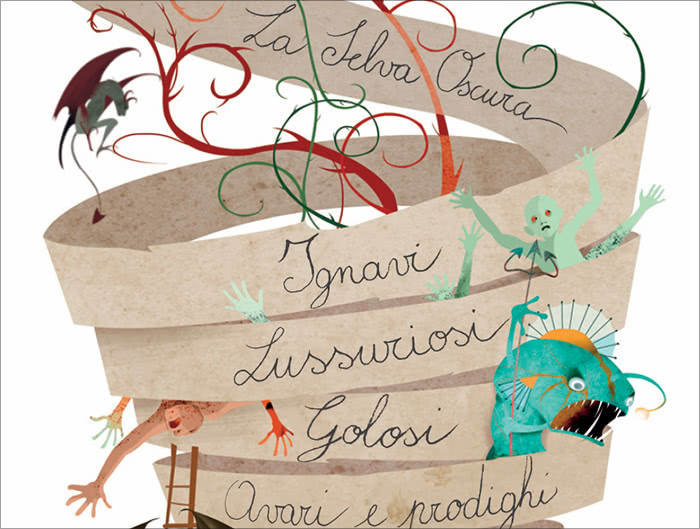 La Selva Oscura
Ignavi
Lussuriosi
Golosi
Avari e prodighi